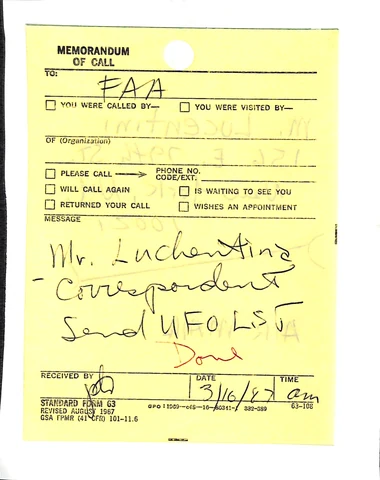 MEMORANDUM
OF CALL
TO:
FAA
YOU WERE CALLED BY— YOU WERE VISITED BY—
OF (Organization)
PLEASE CALL → PHONE NO. CODE/EXT.
WILL CALL AGAIN IS WAITING TO SEE YOU
RETURNED YOUR CALL WISHES AN APPOINTMENT
MESSAGE
Mr. Luchentina
- Correspondent
Send UFO LST
Done
RECEIVED BY DATE TIME
3/16/87 am
STANDARD FORM 63
REVISED AUGUST 1967
GSA FPMR (41 CFR) 101-11.6
63-108